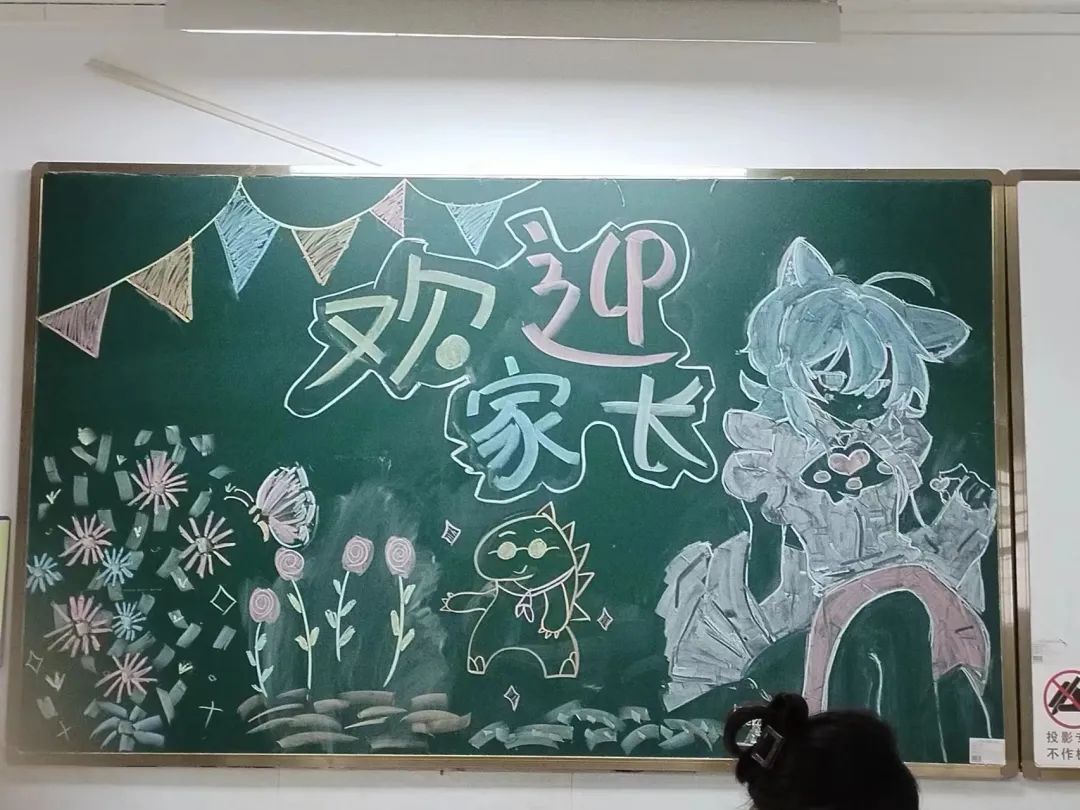 欢迎
家长
投影
不作